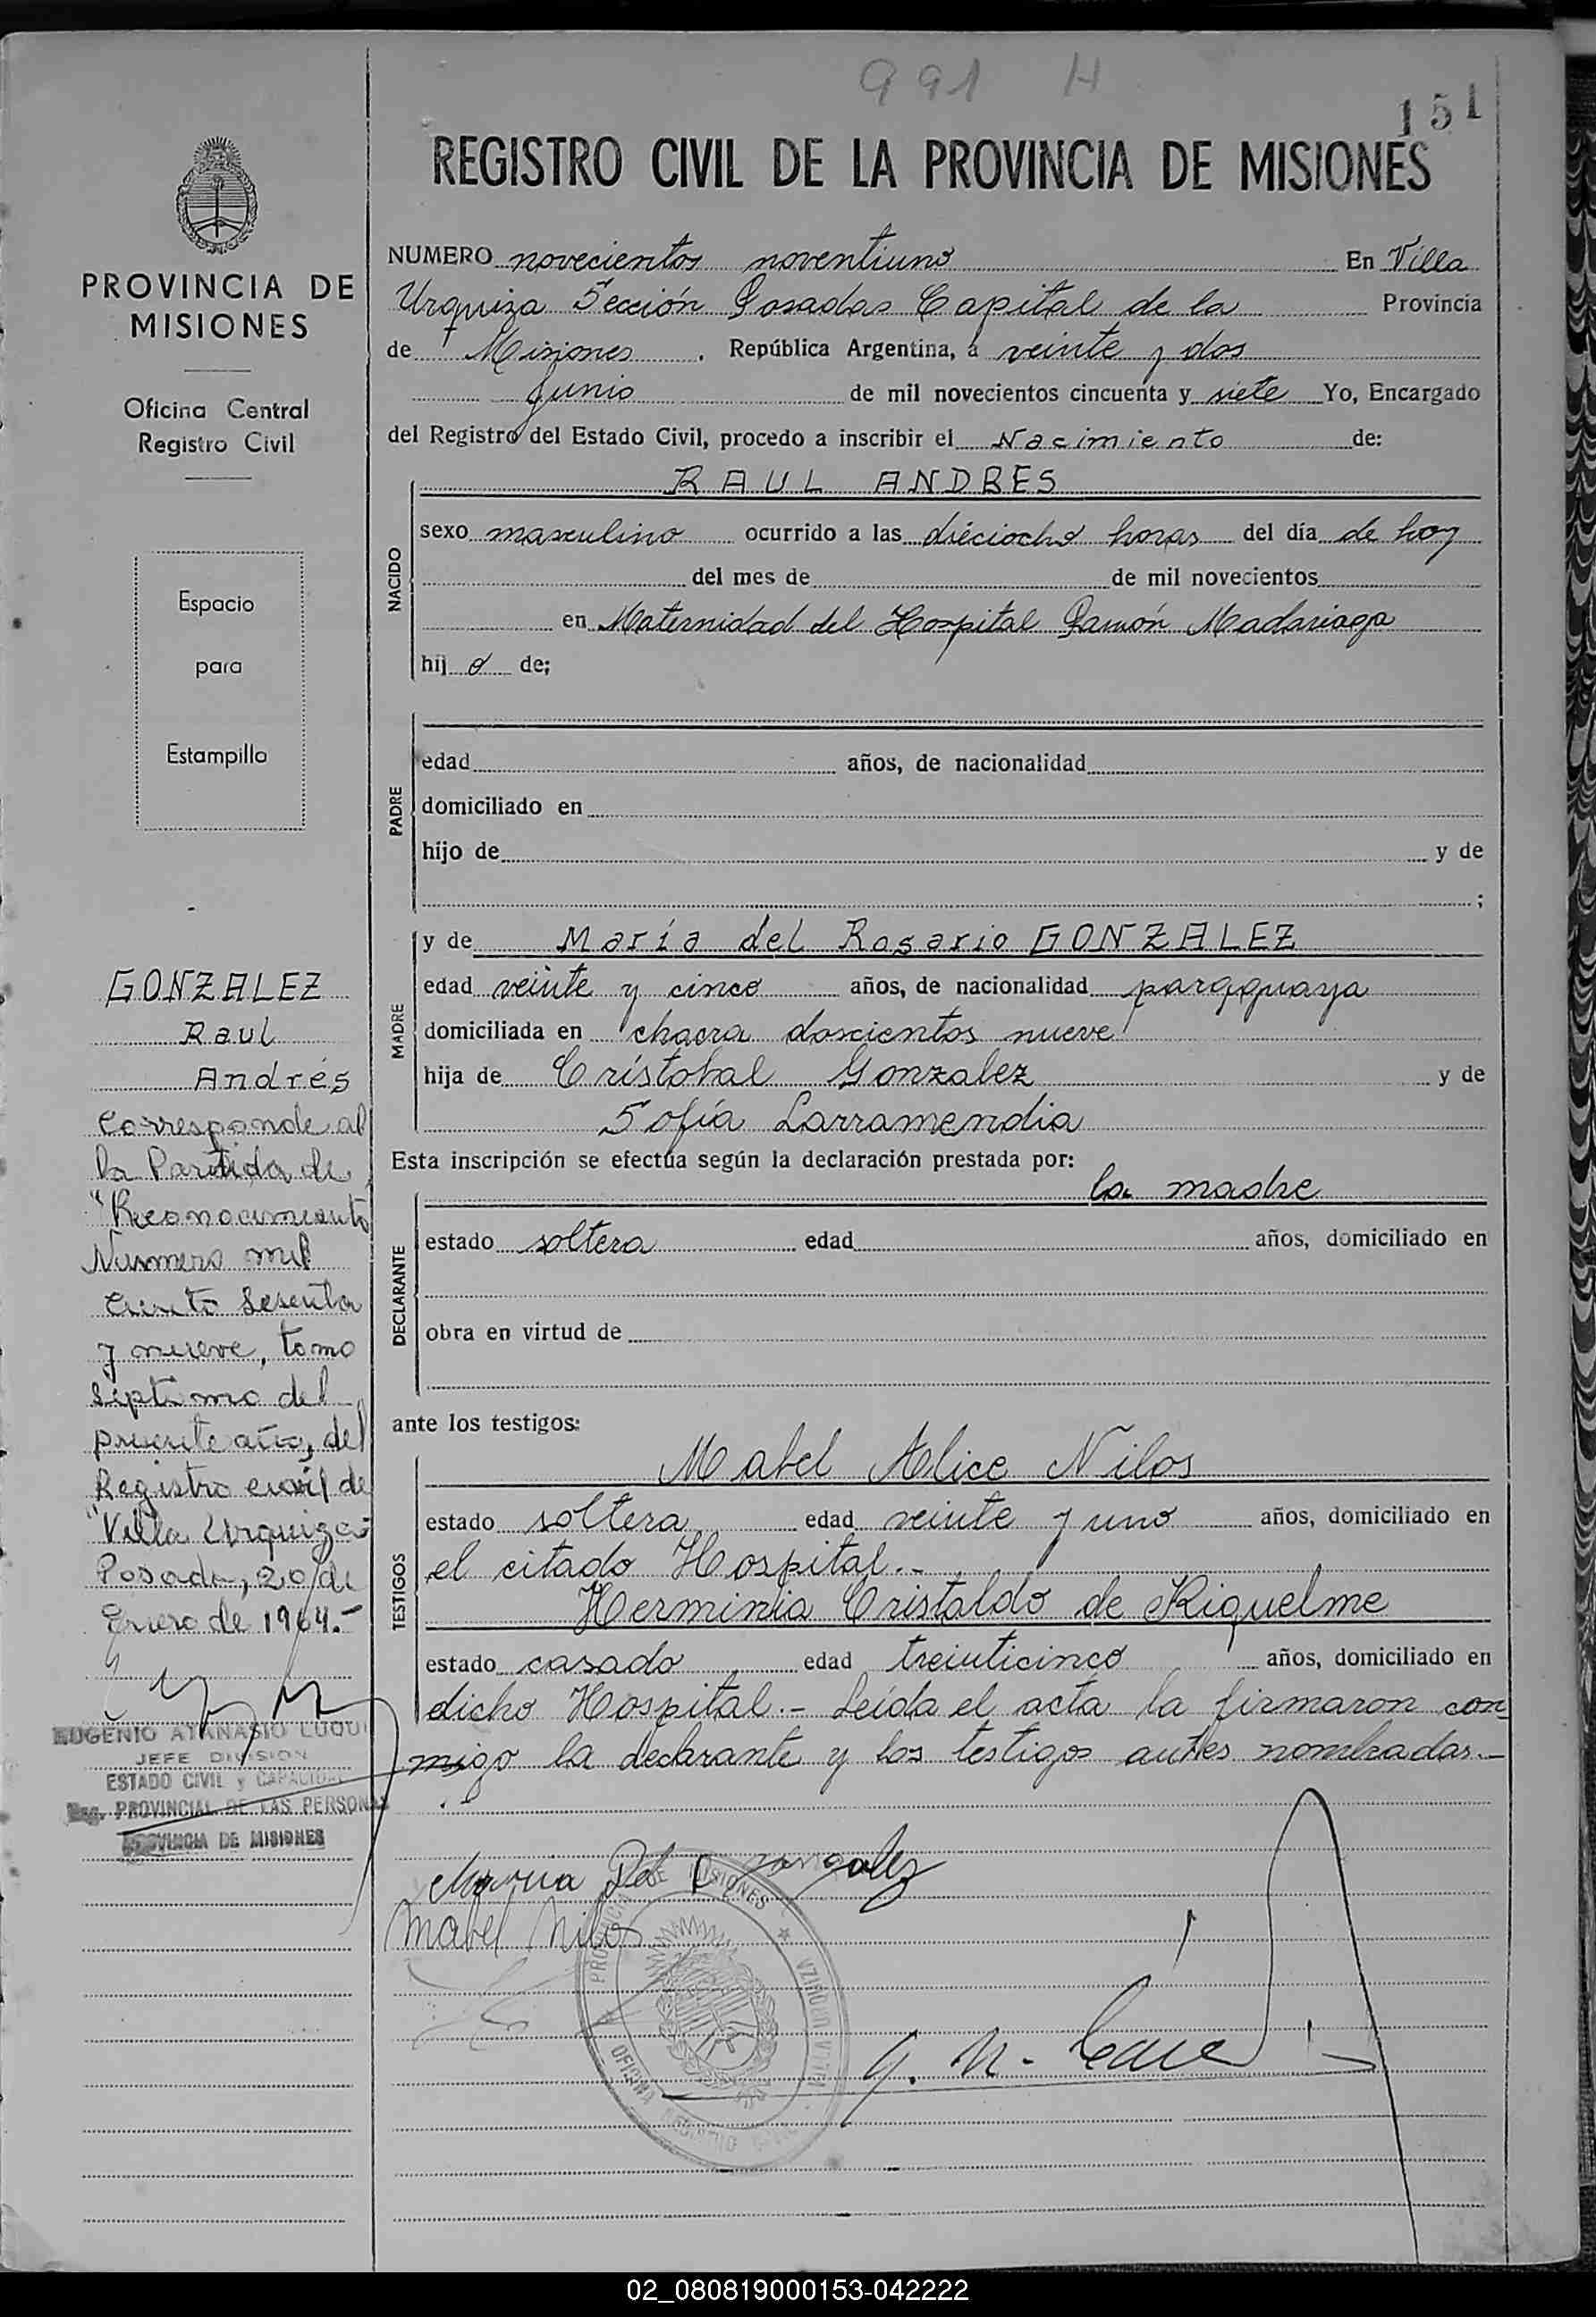 991 H
151
REGISTRO CIVIL DE LA PROVINCIA DE MISIONES
PROVINCIA DE
MISIONES
Oficina Central
Registro Civil
Espacio
para
Estampilla
GONZALEZ
Raul
Andrés
Corresponde al
la Partida de
"Reconocimiento
Numero mil
ciento sesenta
y nueve, tomo
septimo del
presente año, del
Registro civil de
"Villa Urquiza"
Posadas, 20 de
Enero de 1964.-
EUGENIO ATANASIO LUQUE
JEFE DIVISION
ESTADO CIVIL y CAPACIDAD
Reg. PROVINCIAL DE LAS PERSONAS
PROVINCIA DE MISIONES
NUMERO novecientos noventiuno En Villa
Urquiza Sección Posadas Capital de la Provincia
de Misiones. República Argentina, a veinte y dos
Junio de mil novecientos cincuenta y siete Yo, Encargado
del Registro del Estado Civil, procedo a inscribir el Nacimiento de:
NACIDO
RAUL ANDRES
sexo masculino ocurrido a las dieciocho horas del día de hoy
del mes de de mil novecientos
en Maternidad del Hospital Ramón Madariaga
hij o de;
PADRE
edad años, de nacionalidad
domiciliado en
hijo de y de
;
MADRE
y de María del Rosario GONZALEZ
edad veinte y cinco años, de nacionalidad paraguaya
domiciliada en chacra doscientos nueve
hija de Cristobal Gonzalez y de
Sofía Larramendia
Esta inscripción se efectúa según la declaración prestada por:
DECLARANTE
la madre
estado soltera edad años, domiciliado en
obra en virtud de
ante los testigos:
TESTIGOS
Mabel Alice Nilos
estado soltera edad veinte y uno años, domiciliado en
el citado Hospital.-
Herminia Cristaldo de Riquelme
estado casado edad treinticinco años, domiciliado en
dicho Hospital.- Leída el acta la firmaron con-
migo la declarante y los testigos antes nombradas.-
Maria Del R Gonzalez
Mabel Nilos
PROVINCIA DE MISIONES * VILLA URQUIZA
OFICINA REGISTRO CIVIL
02_080819000153-042222